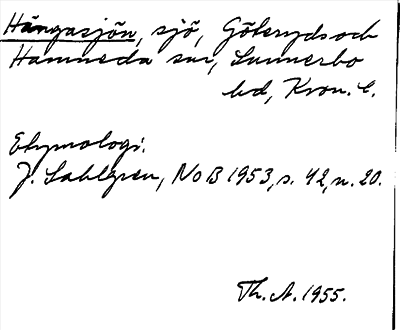 Hängasjön, sjö, Göteryds och
Hamneda snr, Sunnerbo
hd, Kron. l.
Etymologi.
J. Sahlgren, NoB 1953, s. 42, n. 20.
Th. A. 1955.